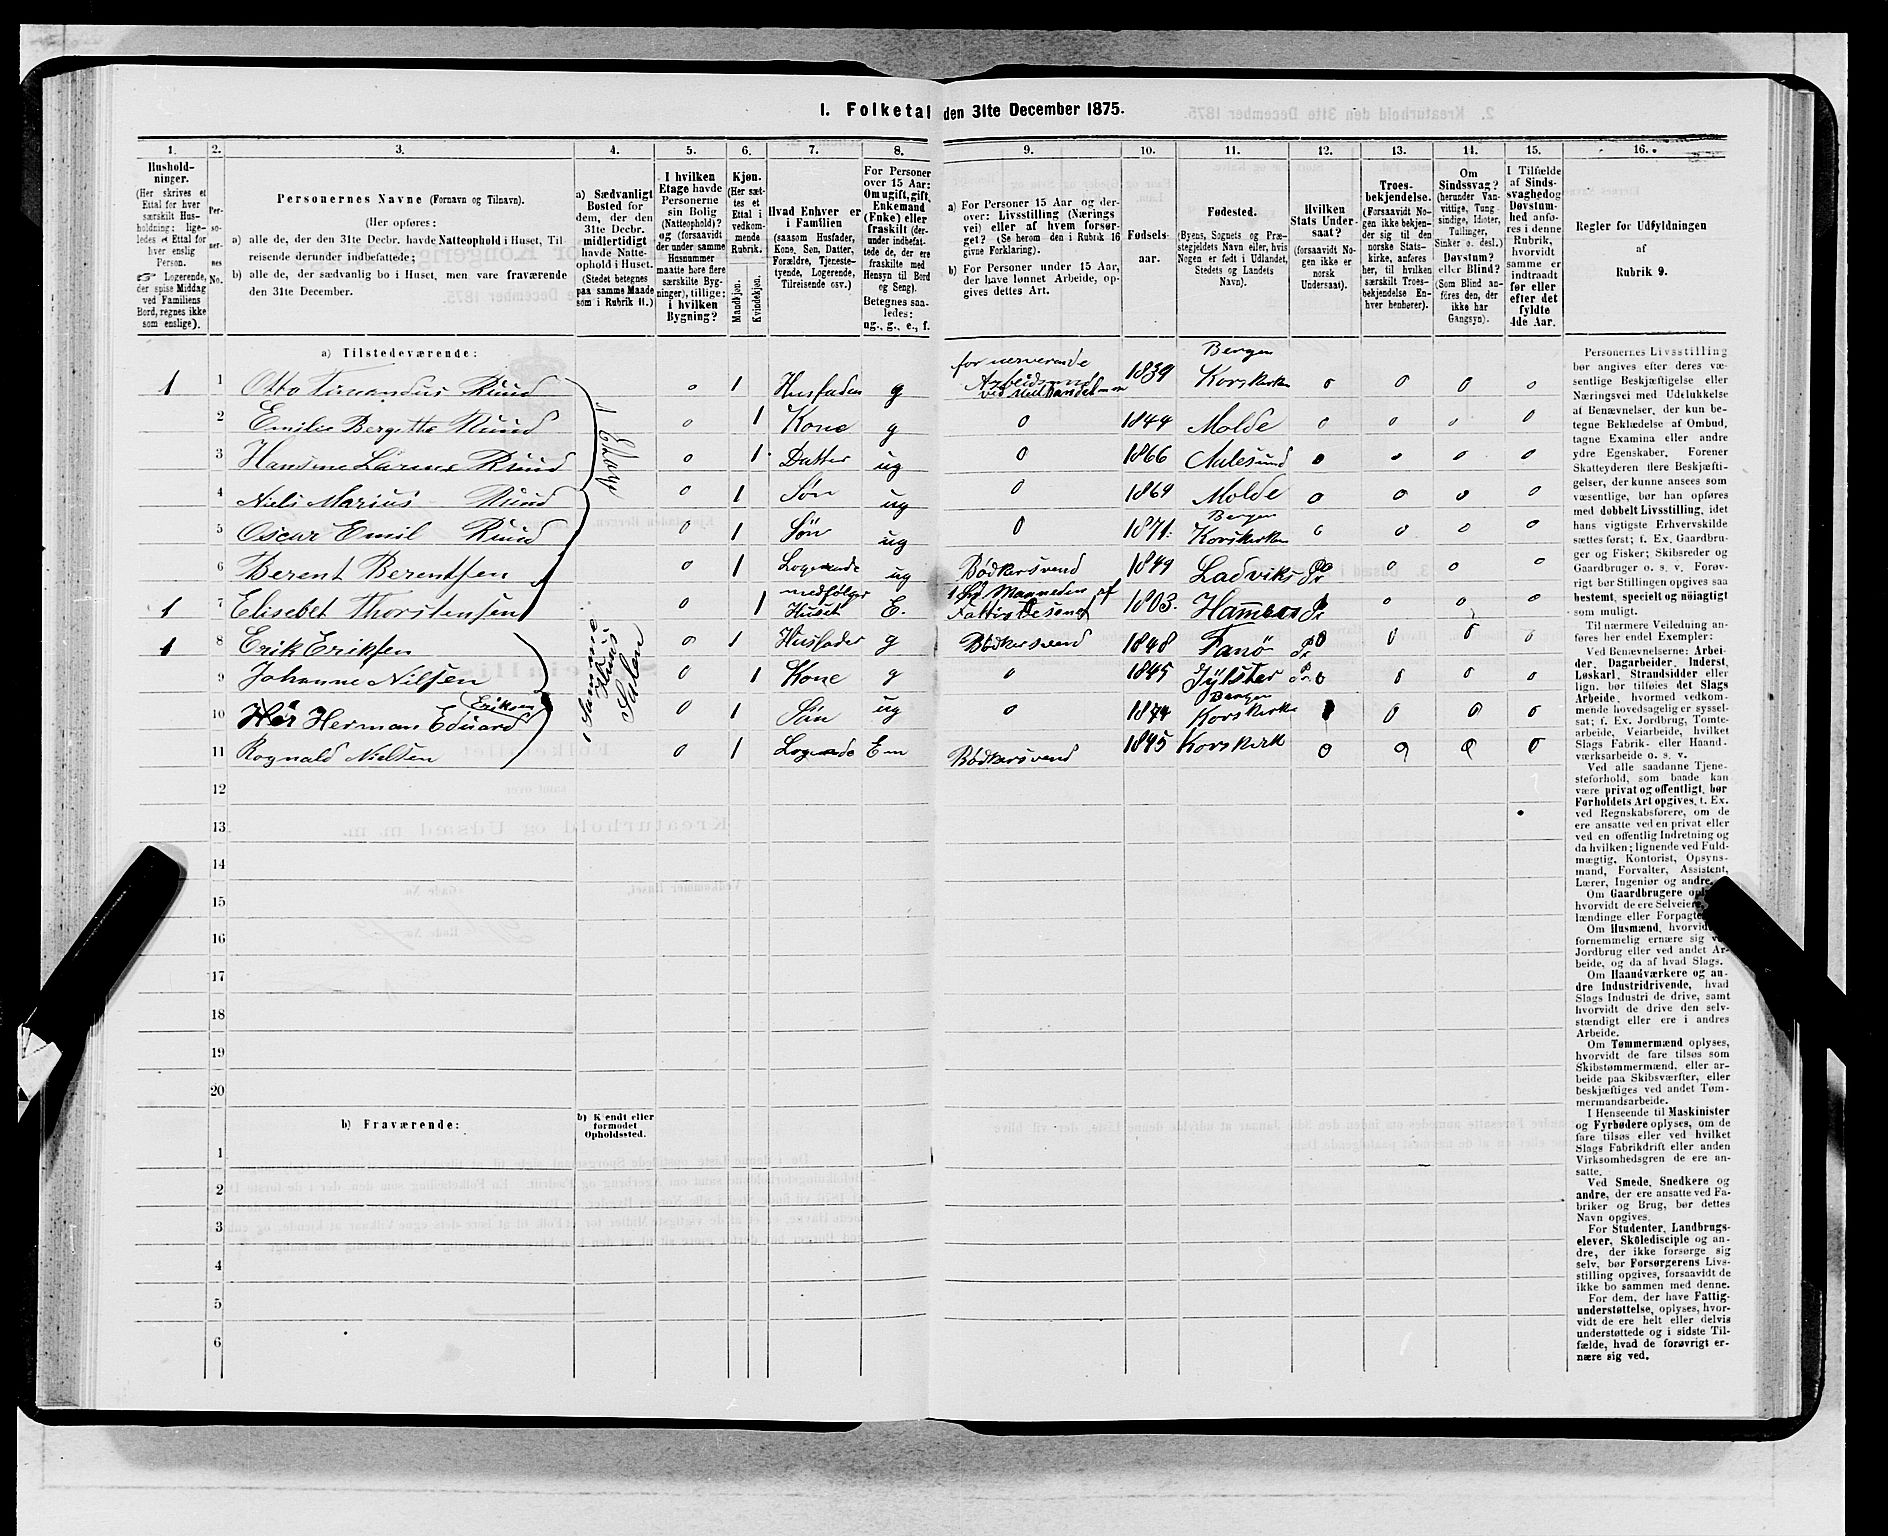 1. Folketal den 31te December 1875.
1. 2. 3. 4. 5. 6. 7. 8. 9. 10. 11. 12. 13. 14. 15. 16.
Hushold-
ninger.
(Her skrives et
Ettal for hver
særskilt Hus-
holdning: lige-
ledes et Ettal for
hver enslig
Person.
Logerende,
der spise Middag
ved Familiens
Bord, regnes ikke
som enslige).
Per-
so-
ner-
nes
No.
Personernes Navne (Fornavn og Tilnavn).
(Her opføres:
a) alle de, der den 31te Decbr. havde Natteophold i Huset, Til
reisende derunder indbefattede;
b) alle de, der sædvanlig bo i Huset, men vare fraværende
den 31te December.
a) Sædvanligt
Bosted for
dem, der den
31te Decbr.
midlertidigt
havde Natte-
ophold i Huset.
(Stedet betegnes
paa samme Maade
som i Rubrik 11.)
I hvilken
Etage havde
Personerne
sin Bolig
(Natteophold)?
og (forsaavidt
der under samme
Husnummer
maatte høre flere
særskilte Byg-
ninger), tillige:
i hvilken
Bygning?
Kjøn.
(Her sæt-
tes et
Ettal i
vedkom-
mende
Rubrik.
Mandkjøn.
Kvindekjøn.
Hvad Enhver er
i Familien
(saasom Husfader,
Kone, Søn, Datter,
Forældre, Tjeneste-
tyende, Logerende,
Tilreisende osv.)
For Personer
over 15 Aar:
Om ugift, gift,
Enkemand
(Enke) eller
fraskilt (der-
under indbefat-
tede de, der ere
fraskilte med
Hensyn til Bord
og Seng).
Betegnes saa-
ledes:
ug., g., e., f.
a) For Personer 15 Aar og der-
over: Livsstilling (Nærings
vei) eller af hvem forsør-
get? (Se herom den i Rubrik 16
givne Forklaring).
b) For Personer under 15 Aar,
der have lønnet Arbeide, op-
gives dettes Art.
Fødsels-
aar.
Fødested.
(Byens, Sognets og Præ-
stegjeldets Navn eller, hvis
Nogen er født i Udlandet,
Stedets og Landets
Navn).
Hvilken
Stats Under-
saat?
(forsaavidt No-
gen ikke er
norsk
Undersaat).
Troes-
bekjendelse.
(Forsaavidt No-
gen ikke bekjen-
der sig til den
norske Stats-
kirke, anføres
her, til hvilken
særskilt Troes-
bekjendelse En-
hver henhører).
Om
Sindssvag?
(herunder Van-
vittige, Tung
sindige, Idioter,
Tullinger,
Sinker o. desl.)
Døvstum?
eller Blind?
(Som Blind an-
føres den, der
ikke har
Gangsyn).
I Tilfælde
af Sinds-
svaghed og
Døvstum-
hed anfø-
res i denne
Rubrik,
hvorvidt
samme er
indtraadt
før eller
efter det
fyldte
4de Aar.
Regler for Udfyldningen
af
Rubrik 9.
a) Tilstedeværende:
1 1 Otto Ruud 0 1 Husfader g for nærværende 1839 Bergen Korskirken 0 0 0 0
2 Emilie Bergitte Ruud 0 1 Kone g 0 1844 Molde 0 0 0 0
3 Hansine Ruud 0 1 Datter ug 0 1866 Aalesund 0 0 0 0
4 Niels Marius Ruud 0 1 Søn ug 0 1869 Molde 0 0 0 0
5 Oscar Emil Ruud 0 1 Søn ug 0 1871 Bergen Korskirken 0 0 0 0
6 Berent Berentsen 0 1 Logerende ug Bødkersvend 1849 Ladviks Pr 0 0 0 0
1 7 Elisebet Thorstensen 0 1 medfølger Huset E. 1 Spd Maaneden af Fattig 1803. Pr 0 0 0
1 8 Erik Eriksen 0 1 Husfader g Bødkersvend 1848 Fanø Pr 0 0 0 0
9 Johanne Nilsen 0 1 Kone g 0 1845 Jølster Pr 0 0 0 0
10 Herman Eduard Eriksen 0 1 Søn ug 0 1874 Bergen Korskirke 0 0 0
11 Rognald Nielsen 0 1 Logerende Em Bødkersvend 1845 Korskirk 0 0 0 0
1 Etage
1 Samme
Huus
Salen
12
13
14
15
16
17
18
19
20
b) Fraværende:
b) Kjendt eller
formodet
Opholdssted.
1
2
3
4
5
6
Personernes Livsstilling
bør angives efter deres væ-
sentlige Beskjæftigelse eller
Næringsvei med Udelukkelse
af Benævnelser, der kun be-
tegne Beklædelse af Ombud,
tagne Examina eller andre
ydre Egenskaber. Forener
Skatteyderen flere Beskjæfti-
gelser, der kunne ansees som
væsentlige, bør han opføres
med dobbelt Livsstilling, idet
hans vigtigste Erhvervskilde
sættes først; f. Ex. Gaardbru-
ger og Fisker; Skibsreder og
Gaardbruger o. s. v. Forøv-
rigt bør Stillingen opgives saa
bestemt, specielt og nøiagtigt
som muligt.
Til nærmere Veiledning an-
føres her endel Exempler:
Ved Benævnelserne: Arbei-
der, Dagarbeider, Inderst,
Løskarl, Strandsidder eller
lign. bør tilføies det Slags
Arbeide, hvormed vedkom-
mende hovedsagelig er syssel-
sat; f. Ex. Jordbrug, Tomte-
arbeide, Veiarbeide, hvilket
Slags Fabrik- eller Haand-
værksarbeide o. s. v.
Ved alle saadanne Tjene-
steforhold, som baade kan
være privat og offentligt, bør
Forholdets Art opgives, f. Ex.
ved Regnskabsførere, om de
ere ansatte ved en privat eller
ved en offentlig Indretning og
da hvilken; lignende ved Fuld-
mægtig, Kontorist, Opsyns-
mand, Forvalter, Assistent,
Lærer, Ingeniør og andre.
Om Gaardbrugere
hvorvidt de ere Selveiere,
lændinge eller
Om Husmænd,
fornemmelig ernære sig
Jordbrug eller ved andet Ar-
beide, og da af hvad Slags.
Om Haandværkere og an-
dre Industridrivende, hvad
Slags Industri de drive, samt
hvorvidt de drive den selv-
stændigt eller ere i andres
Arbeide.
Om Tømmermænd oplyses,
hvorvidt de fare tilsøs som
Skibstømmermænd, eller ar-
beide paa Skibsværfter, eller
beskjæftiges ved andet Tøm-
mermandsarbeide.
I Henseende til Maskinister
og Fyrbødere oplyses, om de
fare tilsøs eller ved hvilket
Slags Fabrikdrift eller anden
Virksomhedsgren de ere an-
satte.
Ved Smede, Snedkere og
andre, der ere ansatte ved Fa-
briker og Brug, bør dettes
Navn opgives.
For Studenter, Landbrugs-
elever, Skoledisciple og an-
dre, der ikke forsørge sig
selv, bør Forsørgerens Livs-
stilling opgives, forsaavidt de
ikke bo sammen med denne.
For dem, der have Fattig-
understøttelse, oplyses, hvor-
vidt de ere helt eller delvis
understøttede og i sidste Til-
fælde, hvad de forøvrigt er-
nære sig ved.